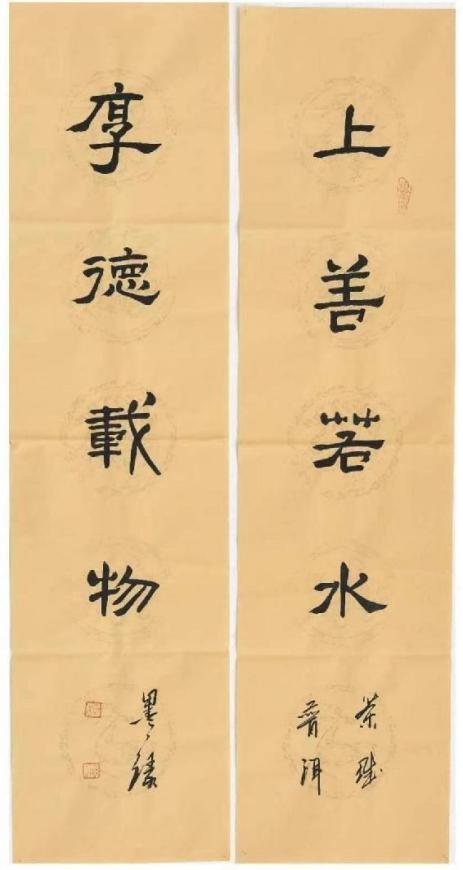 上善若水
茶
普洱
厚德載物
墨